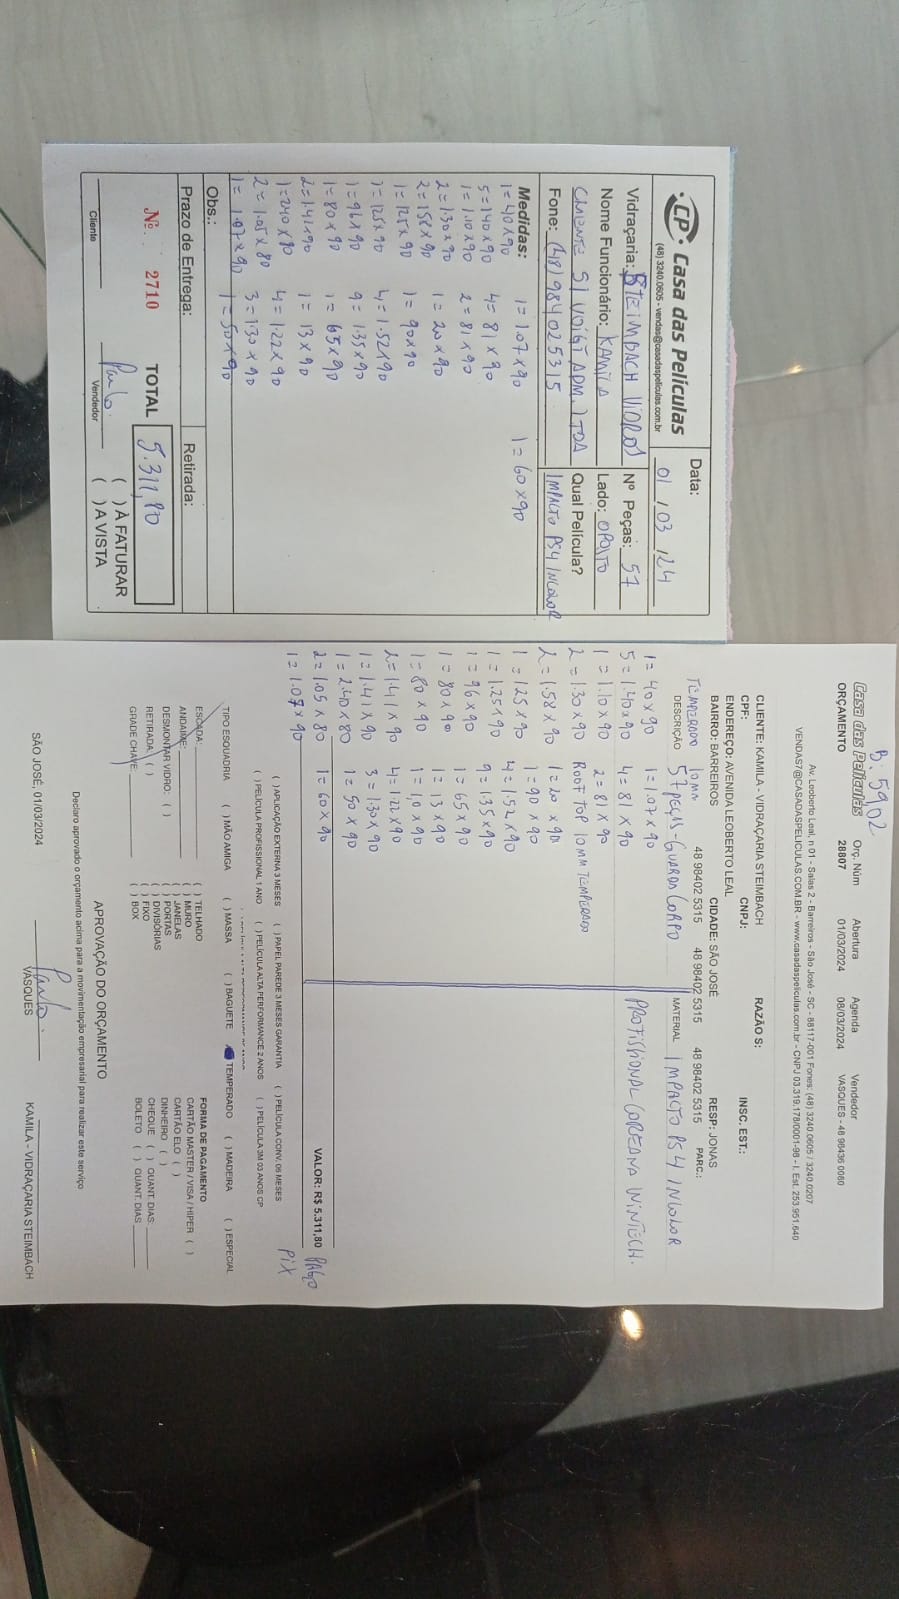 CP Casa das Películas
(48) 3240.0605 - vendas@casadaspeliculas.com.br
Data:
01 / 03 / 24
Vidraçaria: STEIMBACH VIDROS Nº Peças: 57
Nome Funcionário: KAMILA Lado: OPOSTO
CLIENTE SI VOIGT ADM. LTDA Qual Película?
Fone: (48) 984025315 IMPACTO PS4 INCOLOR
Medidas:
1 = 40 x 90 1 = 1.07 x 90 1 = 60 x 90
5 = 140 x 90 4 = 81 x 90
1 = 1.10 x 90 2 = 81 x 90
2 = 1.30 x 90 1 = 20 x 90
2 = 158 x 90 1 = 90 x 90
1 = 125 x 90
1 = 125 x 90 4 = 1.52 x 90
1 = 96 x 90 9 = 1.35 x 90
1 = 80 x 90 1 = 65 x 90
2 = 1.41 x 90 1 = 13 x 90
1 = 240 x 90 4 = 1.22 x 90
2 = 1.05 x 80 3 = 1.30 x 90
1 = 1.07 x 90 1 = 50 x 90
Obs.:
Prazo de Entrega: Retirada:
Nº. 2710 TOTAL 5.311,80
Paulo. ( ) À FATURAR
Cliente Vendedor ( ) A VISTA
B: 5902
Casa das Películas Orç. Núm Abertura Agenda Vendedor
ORÇAMENTO 28807 01/03/2024 08/03/2024 VASQUES - 48 98436 0060
Av. Leoberto Leal, n 01 - Salas 2 - Barreiros - São José - SC - 88117-001 Fones: (48) 3240.0605 / 3240.0207
VENDAS7@CASADASPELICULAS.COM.BR - www.casadaspeliculas.com.br - CNPJ 03.319.178/0001-98 - I. Est. 253.951.640
CLIENTE: KAMILA - VIDRAÇARIA STEIMBACH RAZÃO S:
CPF: CNPJ: INSC. EST.:
ENDEREÇO: AVENIDA LEOBERTO LEAL
BAIRRO: BARREIROS CIDADE: SÃO JOSÉ RESP: JONAS
48 98402 5315 48 98402 5315 48 98402 5315 PARC.:
TEMPERADO 10mm
DESCRIÇÃO 57 PEÇAS - GUARDA CORPO MATERIAL IMPACTO PS4 INCOLOR
1 = 40 x 90 1 = 1.07 x 90 PROFISSIONAL COREANA WINTECH.
5 = 1.40 x 90 4 = 81 x 90
1 = 1.10 x 90 2 = 81 x 90
2 = 1.30 x 90 ROOF TOP 10MM TEMPERADO
2 = 1.58 x 90 1 = 20 x 90
1 = 1.25 x 90 1 = 90 x 90
1 = 1.25 x 90 4 = 1.52 x 90
1 = 96 x 90 9 = 1.35 x 90
1 = 80 x 90 1 = 65 x 90
1 = 80 x 90 1 = 13 x 90
2 = 1.41 x 90 1 = 1,0 x 90
1 = 1.41 x 90 4 = 1.22 x 90
1 = 2.40 x 80 3 = 1.30 x 90
2 = 1.05 x 80 1 = 50 x 90
1 = 1.07 x 90 1 = 60 x 90
VALOR: R$ 5.311,80 PAGO
PIX
( ) APLICAÇÃO EXTERNA 3 MESES ( ) PAPEL PAREDE 3 MESES GARANTIA ( ) PELÍCULA CONV. 06 MESES
( ) PELÍCULA PROFISSIONAL 1 ANO ( ) PELÍCULA ALTA PERFORMANCE 2 ANOS ( ) PELÍCULA 3M 03 ANOS CP
TIPO ESQUADRIA ( ) MÃO AMIGA ( ) MASSA ( ) BAGUETE TEMPERADO ( ) MADEIRA ( ) ESPECIAL
ESCADA: ( ) TELHADO FORMA DE PAGAMENTO
ANDAIME: ( ) MURO CARTÃO MASTER / VISA / HIPER ( )
DESMONTAR VIDRO: ( ) ( ) JANELAS CARTÃO ELO ( )
RETIRADA: ( ) ( ) PORTAS DINHEIRO ( )
GRADE CHAVE: ( ) DIVISÓRIAS CHEQUE ( ) QUANT. DIAS:
( ) FIXO BOLETO ( ) QUANT. DIAS
( ) BOX
APROVAÇÃO DO ORÇAMENTO
Declaro aprovado o orçamento acima para a movimentação empresarial para realizar este serviço
SÃO JOSÉ, 01/03/2024 Paulo. VASQUES KAMILA - VIDRAÇARIA STEIMBACH